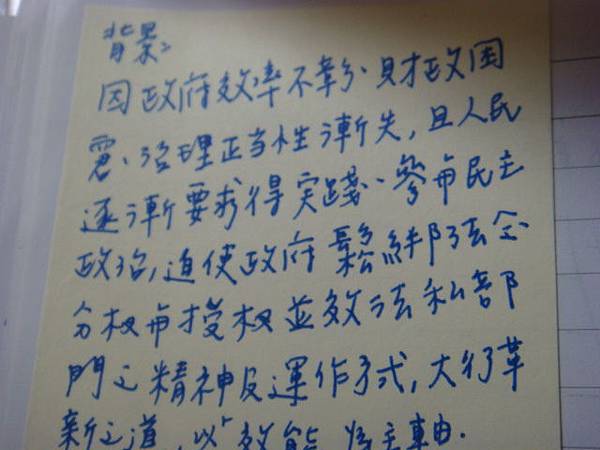 背景:
因政府效率不彰、財政困
窘、治理正当性漸失,且人民
逐漸要求得实踐、參与民主
政治,迫使政府鬆綁法令
分权与授权並效法私部
門之精神及運作方式,大行革
新之道,以"效能為主軸.